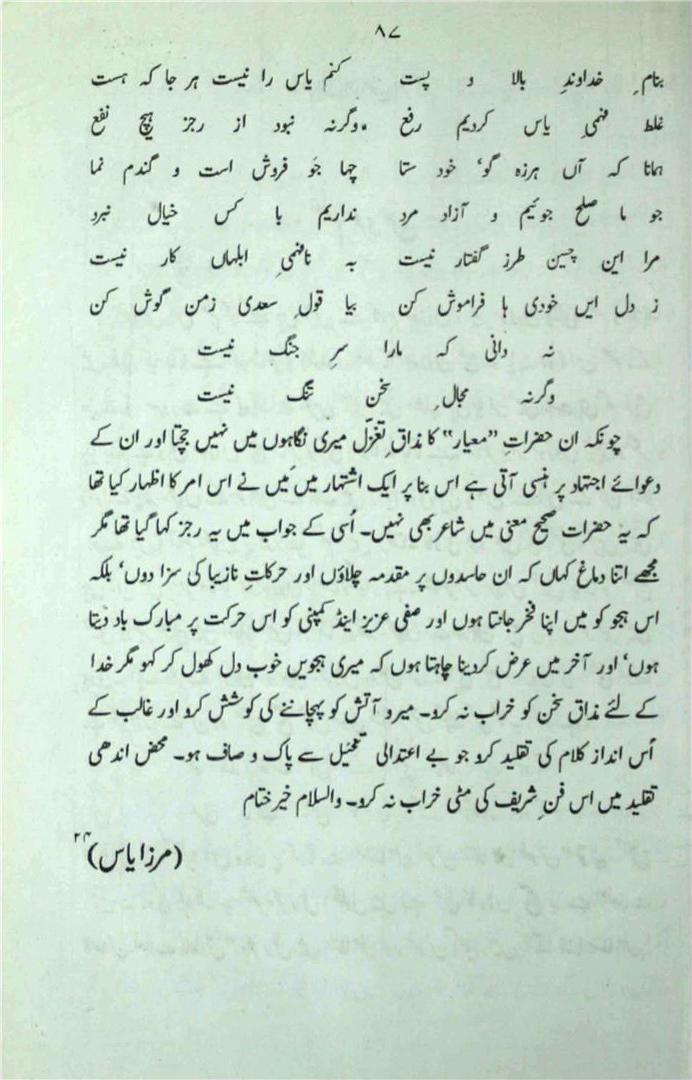 ۸۷
بنامِ خداوندِ بالا و پست کنم یاس را نیست ہر جا کہ ہست
غلط فہمیِ یاس کردیم رفع وگرنہ نبود از رجز ہیچ نفع
ہمانا کہ آں ہرزہ گو، خود ستا چہا جَو فروش است و گندم نما
جو ما صلح جوئیم و آزاد مرد نداریم با کس خیال نبرد
مرا ایں چنیں طرز گفتار نیست بہ نافہمیِ ابلہاں کار نیست
ز دل ایں خودی ہا فراموش کن بیا قولِ سعدی زمن گوش کن
نہ دانی کہ مارا سرِ جنگ نیست
وگرنہ مجالِ سخن تنگ نیست
چونکہ ان حضراتِ ”معیار“ کا مذاقِ تغزّل میری نگاہوں میں نہیں جچتا اور ان کے
دعوائے اجتہاد پر ہنسی آتی ہے اس بنا پر ایک اشتہار میں مَیں نے اس امر کا اظہار کیا تھا
کہ یہ حضرات صحیح معنی میں شاعر بھی نہیں۔ اُسی کے جواب میں یہ رجز کہا گیا تھا مگر
مجھے اتنا دماغ کہاں کہ ان حاسدوں پر مقدمہ چلاؤں اور حرکاتِ نازیبا کی سزا دوں، بلکہ
اس ہجو کو میں اپنا فخر جانتا ہوں اور صفی عزیز اینڈ کمپنی کو اس حرکت پر مبارک باد دیتا
ہوں، اور آخر میں عرض کردینا چاہتا ہوں کہ میری ہجویں خوب دل کھول کر کہو مگر خدا
کے لئے مذاق سخن کو خراب نہ کرو۔ میر و آتش کو پہچاننے کی کوشش کرو اور غالب کے
اُس انداز کلام کی تقلید کرو جو بے اعتدالی تخئیل سے پاک و صاف ہو۔ محض اندھی
تقلید میں اس فنِ شریف کی مٹی خراب نہ کرو۔ والسلام خیر ختام
(مرزا یاس) ۲۴